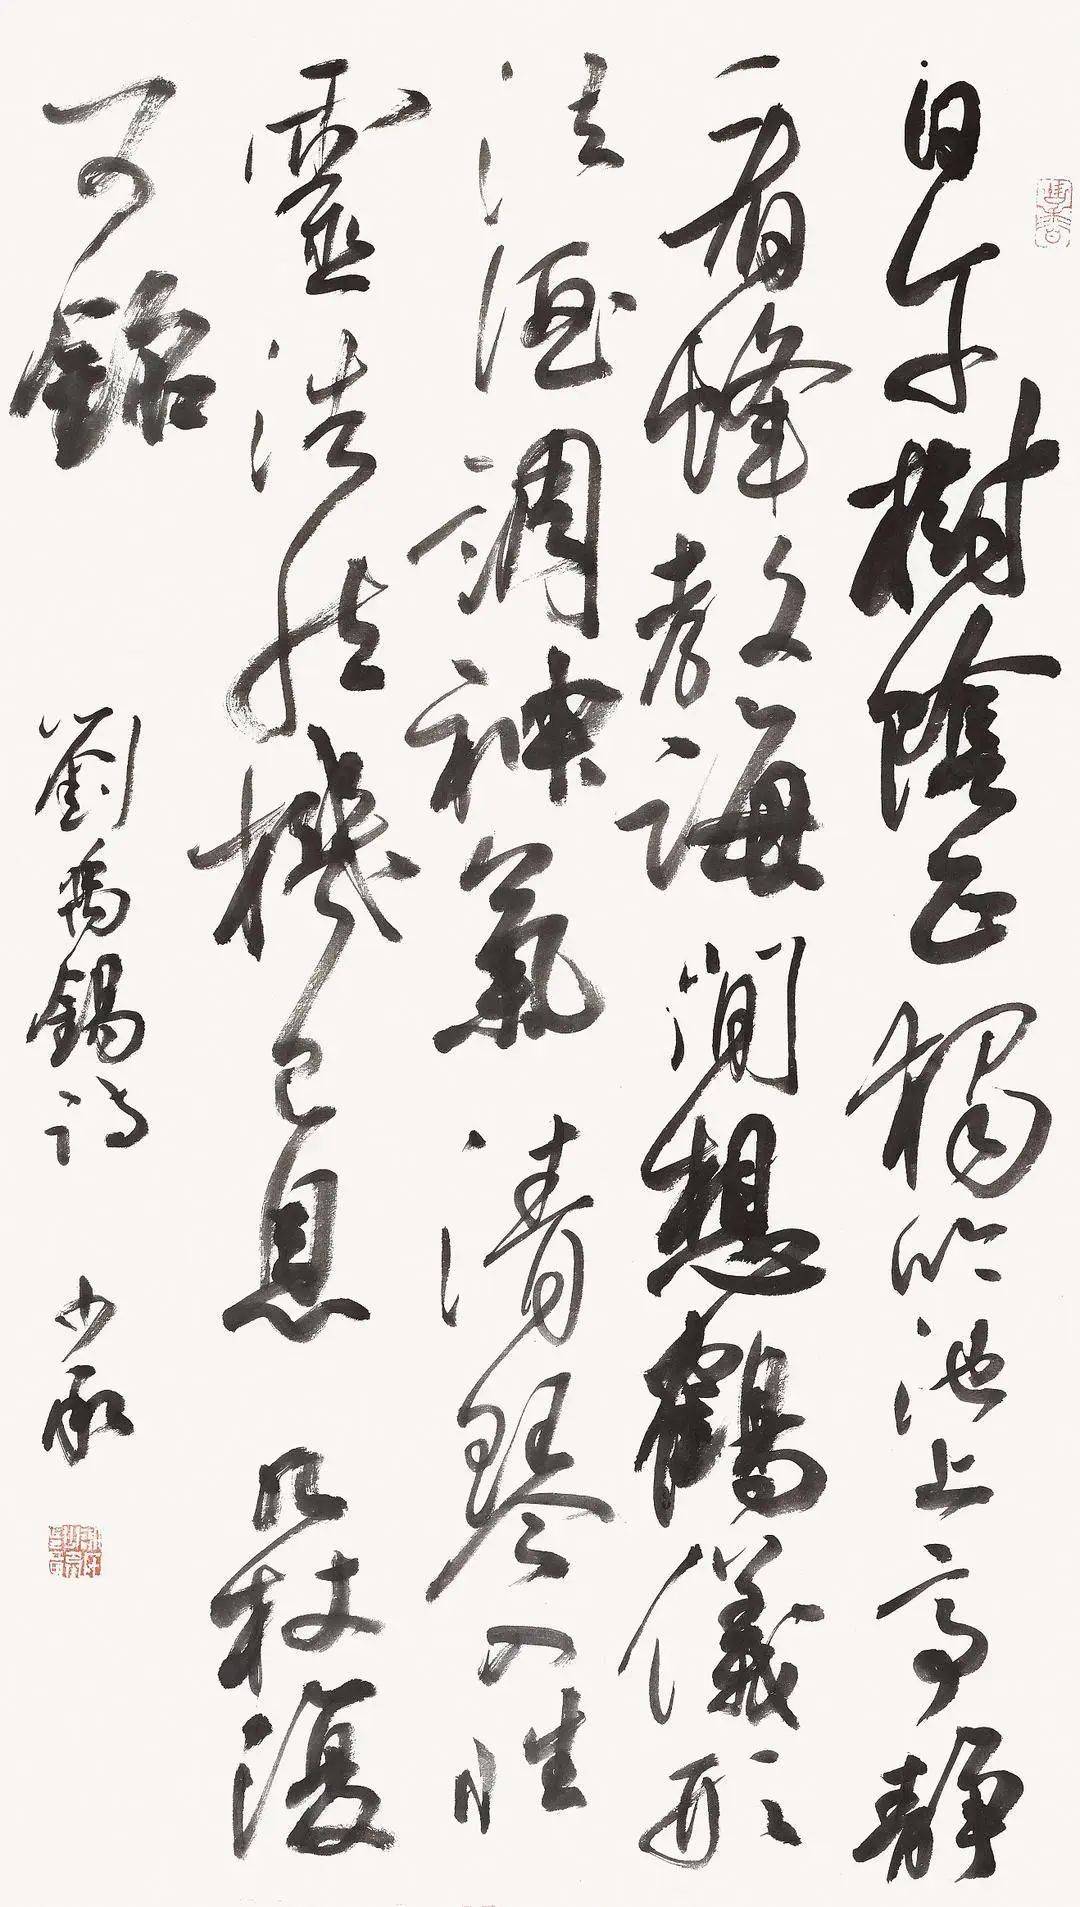 日午樹陰正獨吟池上亭靜
看蜂教誨閒想鶴儀形
法酒調神氣清琴入性
靈浩然機已息几杖復
可銘
劉禹錫詩 少承